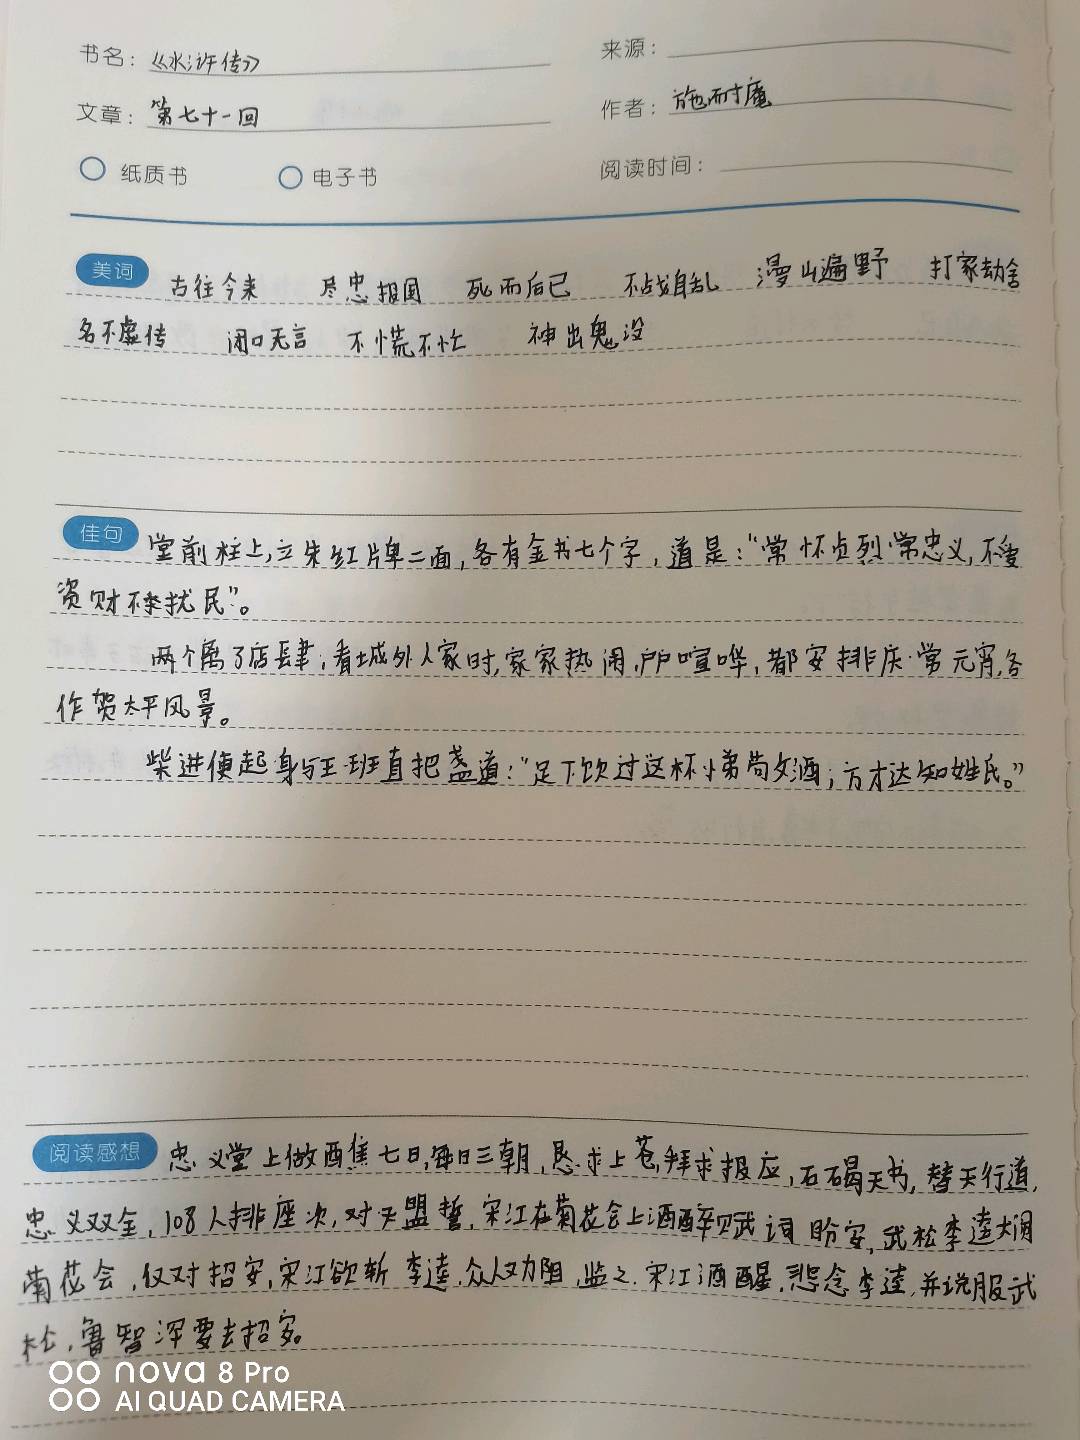 书名：《水浒传》 来源：
文章：第七十一回 作者：施耐庵
纸质书 电子书 阅读时间：
美词 古往今来 尽忠报国 死而后已 不战自乱 漫山遍野 打家劫舍
名不虚传 闭口无言 不慌不忙 神出鬼没
佳句 堂前柱上，立朱红牌二面，各有金书七个字，道是：“常怀贞烈常忠义，不爱
资财不扰民”。
两个离了店肆，看城外人家时，家家热闹，户户喧哗，都安排庆赏元宵，各
作贺太平风景。
柴进便起身与王班直把盏道：“足下饮过这杯小弟敬酒，方才达知姓氏。”
阅读感想 忠义堂上做醮七日，每日三朝，恳求上苍，拜求报应，石碣天书，替天行道，
忠义双全，108人排座次，对天盟誓，宋江在菊花会上酒醉赋词盼安，武松李逵大闹
菊花会，反对招安，宋江欲斩李逵，众人劝阻，监之，宋江酒醒，悲念李逵，并说服武
松，鲁智深要去招安。
nova 8 Pro
AI QUAD CAMERA